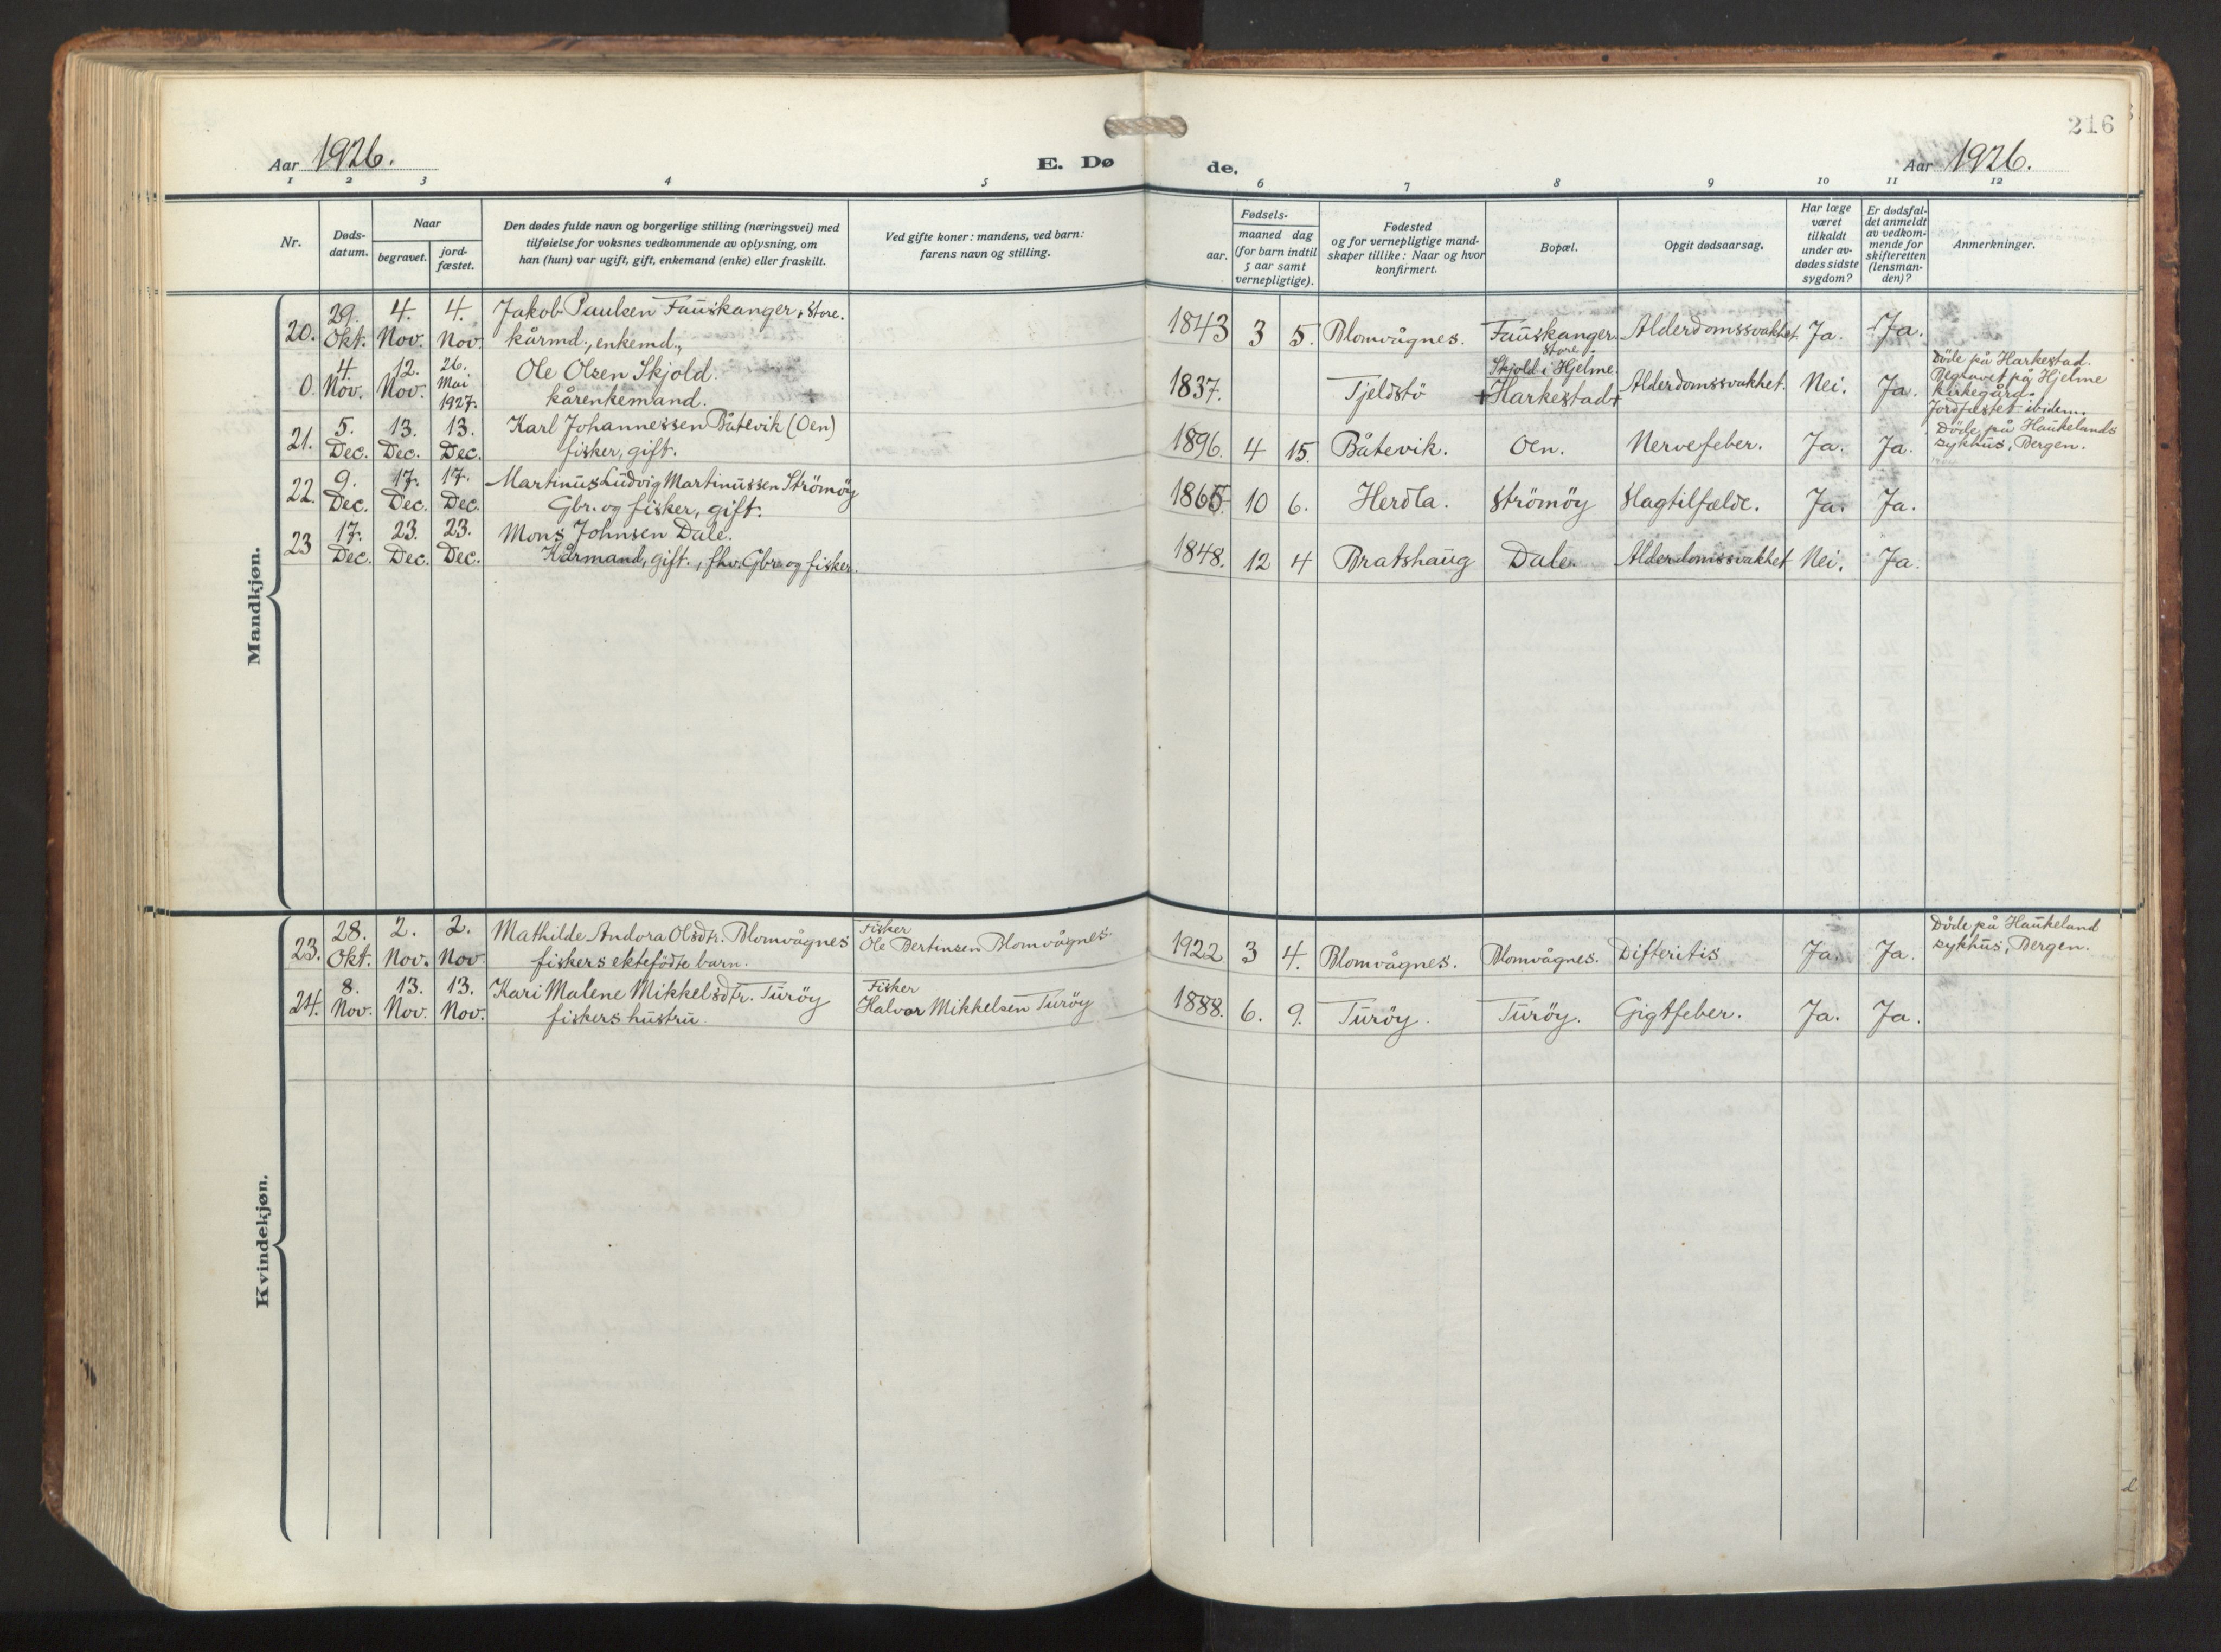 216
Aar 1926.
E. Dø
de.
Aar 1926.
1 2 3 4 5 6 7 8 9 10 11 12
Nr.
Døds-
datum.
Naar
begravet.
jord-
fæstet.
Den dødes fulde navn og borgerlige stilling (næringsvei) med
tilføielse for voksnes vedkommende av oplysning, om
han (hun) var ugift, gift, enkemand (enke) eller fraskilt.
Ved gifte koner: mandens, ved barn:
farens navn og stilling.
Fødsels-
aar.
maaned dag
(for barn indtil
5 aar samt
vernepligtige).
Fødested
og for vernepligtige mand-
skaper tillike: Naar og hvor
konfirmert.
Bopæl.
Opgit dødsaarsag.
Har læge
været
tilkaldt
under av-
dødes sidste
sygdom?
Er dødsfal-
det anmeldt
av vedkom-
mende for
skifteretten
(lensman-
den)?
Anmerkninger.
Mandkjøn.
20. 29. Okt. 4. Nov. 4. Nov. Jakob Paulsen Fauskanger, Store.
kårmd., enkemd., 1843 3 5. Blomvågnes. Fauskanger Store. Alderdomssvakhet Ja. Ja.
0. 4 Nov. 12. Nov. 26. Mai 1927. Ole Olsen Skjold.
kårenkemand. + 1837. Tjeldstö Skjold i Hjelme.
+Harkestad+ Alderdomssvakhet. Nei. Ja. Döde på Harkestad.
Begravet på Hjelme
kirkegård.
Jordfæstet ibidem.
21. 5. Dec. 13. Dec. 13. Dec. Karl Johannessen Båtevik (Oen)
fisker, gift. 1896. 4 15. Båtevik. Oen. Nervefeber. Ja. Ja. Döde på Haukelands
sykhus, Bergen.
22. 9. Dec. 17. Dec. 17. Dec. Martinus Ludvig Martinussen Strömöy
Gbr. og fisker, gift. 1865 10 6. Herdla. Strömöy Slagtilfælde. Ja. Ja.
23 17. Dec. 23. Dec. 23. Dec. Mons Johnsen Dale.
Kårmand, gift., fhv. Gbr. og fisker. 1848. 12 4 Bratshaug Dale. Alderdomssvakhet Nei. Ja.
Kvindekjøn.
23. 28. Okt. 2. Nov. 2. Nov Mathilde Andora Olsdtr. Blomvågnes
fiskers ektefödte barn. Fisker
Ole Bertinsen Blomvågnes. 1922 3 4. Blomvågnes. Blomvågnes. Difteritis Ja. Ja. Döde på Haukeland
sykhus, Bergen.
24. 8. Nov. 13. Nov. 13. Nov. Kari Malene Mikkelsdtr. Turöy
fiskers hustru. Fisker
Halvor Mikkelsen Turöy 1888. 6. 9. Turöy. Turöy. Gigtfeber. Ja. Ja.